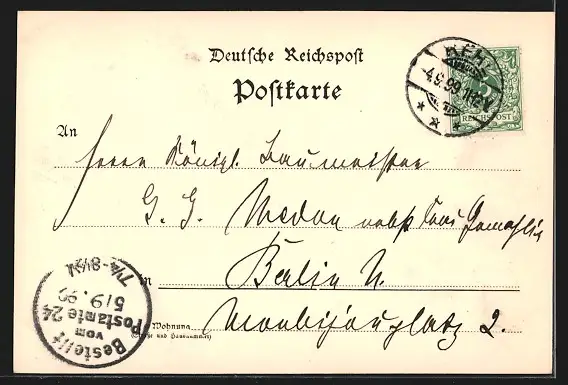 Deutsche Reichspost
Postkarte
KEHL
4.9.99.11-12V.
REICHSPOST
An
Herrn Königl. Baumeister
G. G. Medon nebst Frau Gemahlin
in Berlin N.
Monbijouplatz 2.
Wohnung
(Straße und Hausnummer)
Bestellt
vom
Postamte 24
5/9.99
7¼-8½V.